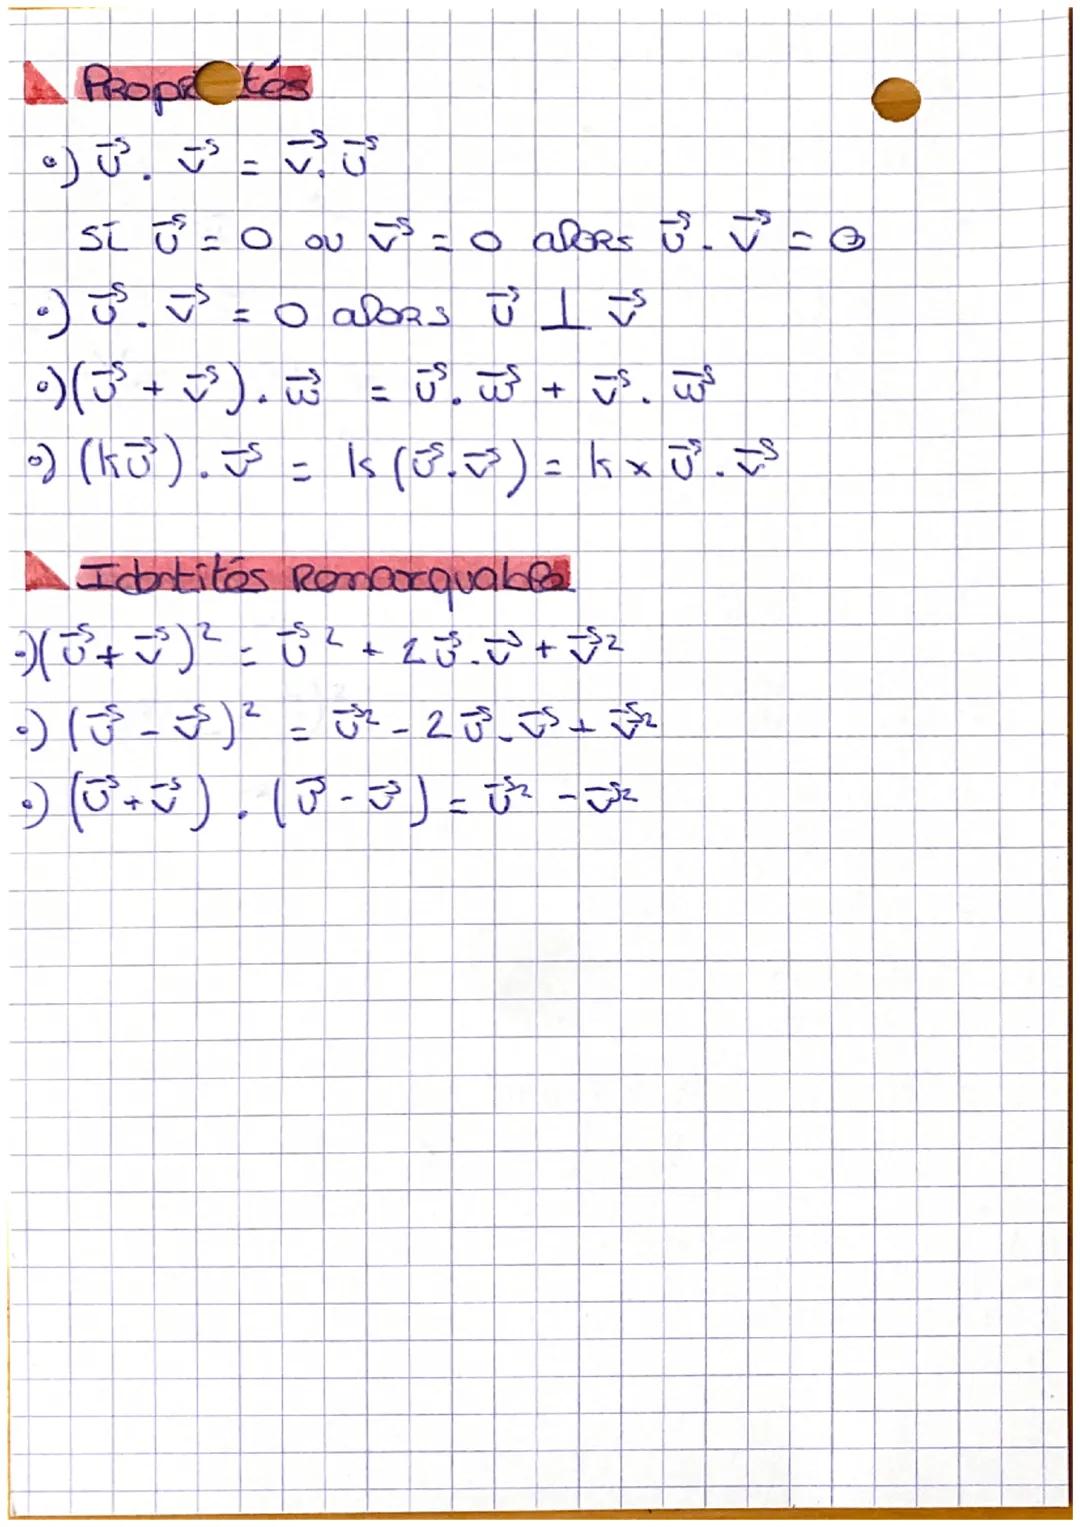 Propriétés
•) u⃗ . v⃗ = v⃗ . u⃗
Si u⃗ = 0 ou v⃗ = 0 alors u⃗ . v⃗ = 0
•) u⃗ . v⃗ = 0 alors u⃗ ⊥ v⃗
•) (u⃗ + v⃗) . w⃗ = u⃗ . w⃗ + v⃗ . w⃗
•) (ku⃗) . v⃗ = k (u⃗ . v⃗) = k × u⃗ . v⃗
Identités Remarquables
•) (u⃗ + v⃗)² = u⃗² + 2u⃗ . v⃗ + v⃗²
•) (u⃗ - v⃗)² = u⃗² - 2u⃗ . v⃗ + v⃗²
•) (u⃗ + v⃗) . (u⃗ - v⃗) = u⃗² - v⃗²